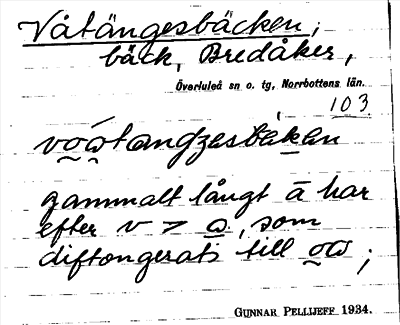 Våtängesbäcken;
bäck, Bredåker,
Överluleå sn o. tg, Norrbottens län.
103
gammalt långt ā har
efter v > ω, som
diftongerats till oω;
GUNNAR PELLIJEFF 1934.